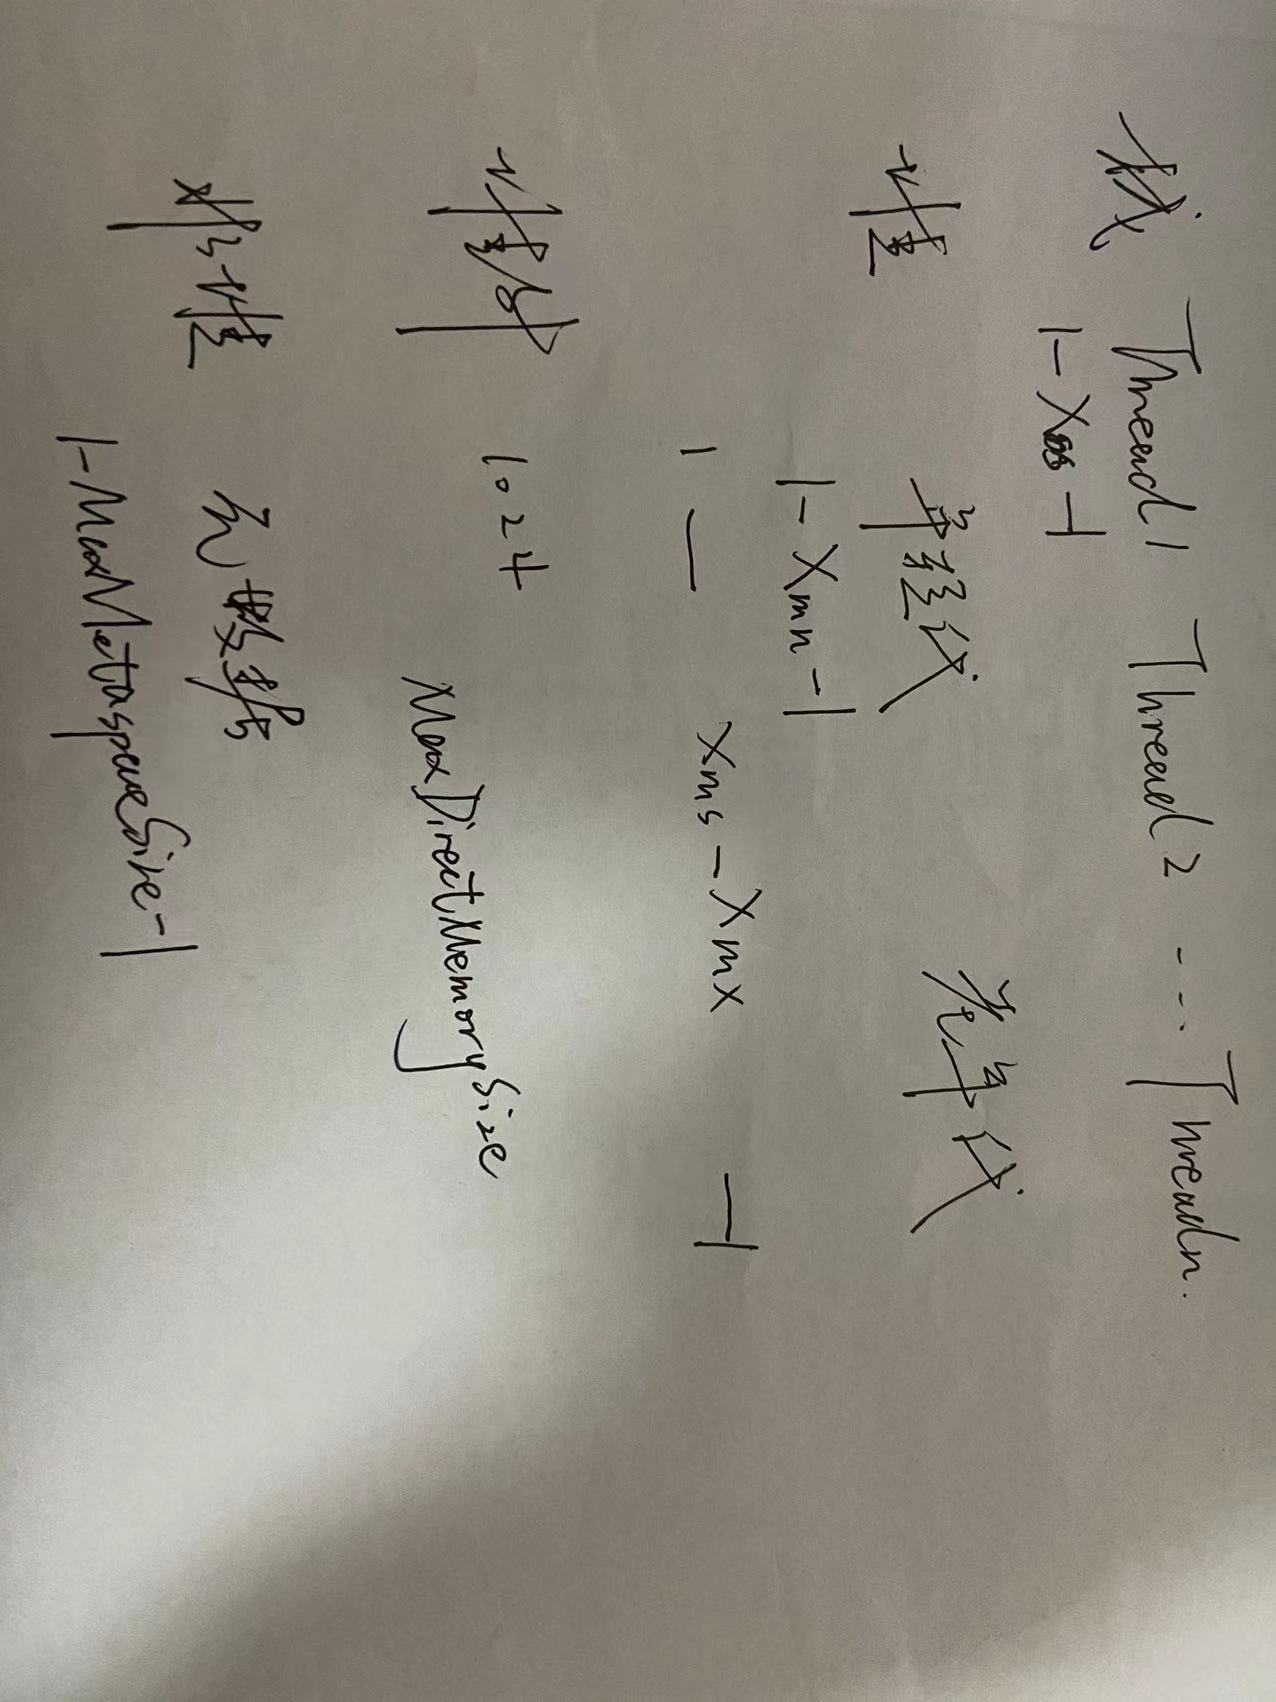 栈 Thread1 Thread2 ... Threadn.
|-Xss-|
堆 年轻代 老年代
|-Xmn-|
| — Xms-Xmx —|
堆外 1024 MaxDirectMemorySize
非堆 元数据
|-MaxMetaspaceSize-|